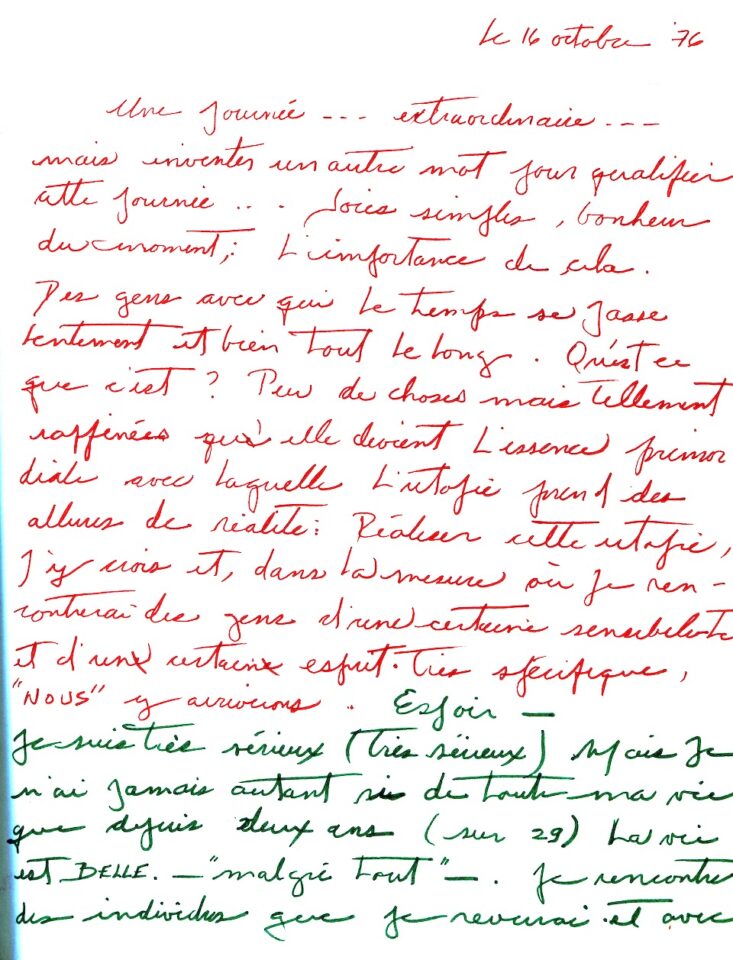 Le 16 octobre '76
Une journée --- extraordinaire ---
mais inventer un autre mot pour qualifier
cette journée ... Joies simples, bonheur
du moment,: L'importance de cela.
Des gens avec qui le temps se passe
lentement et bien tout le long. Qu'est ce
que c'est? Peu de choses mais tellement
raffinées qu'elle devient L'essence primor
diale avec laquelle L'utopie prend des
allures de réalité: Réaliser cette utopie,
J'y crois et, dans la mesure où je ren-
contrerai des gens d'une certaine sensibilité
et d'un certain esprit. très spécifique,
"NOUS" y arriverons. Espoir —
Je suis très sérieux (très sérieux) Mais je
n'ai jamais autant ri de toute ma vie
que depuis deux ans (sur 29) La vie
est BELLE. — "malgré tout" —. Je rencontre
des individus que je reverrai et avec